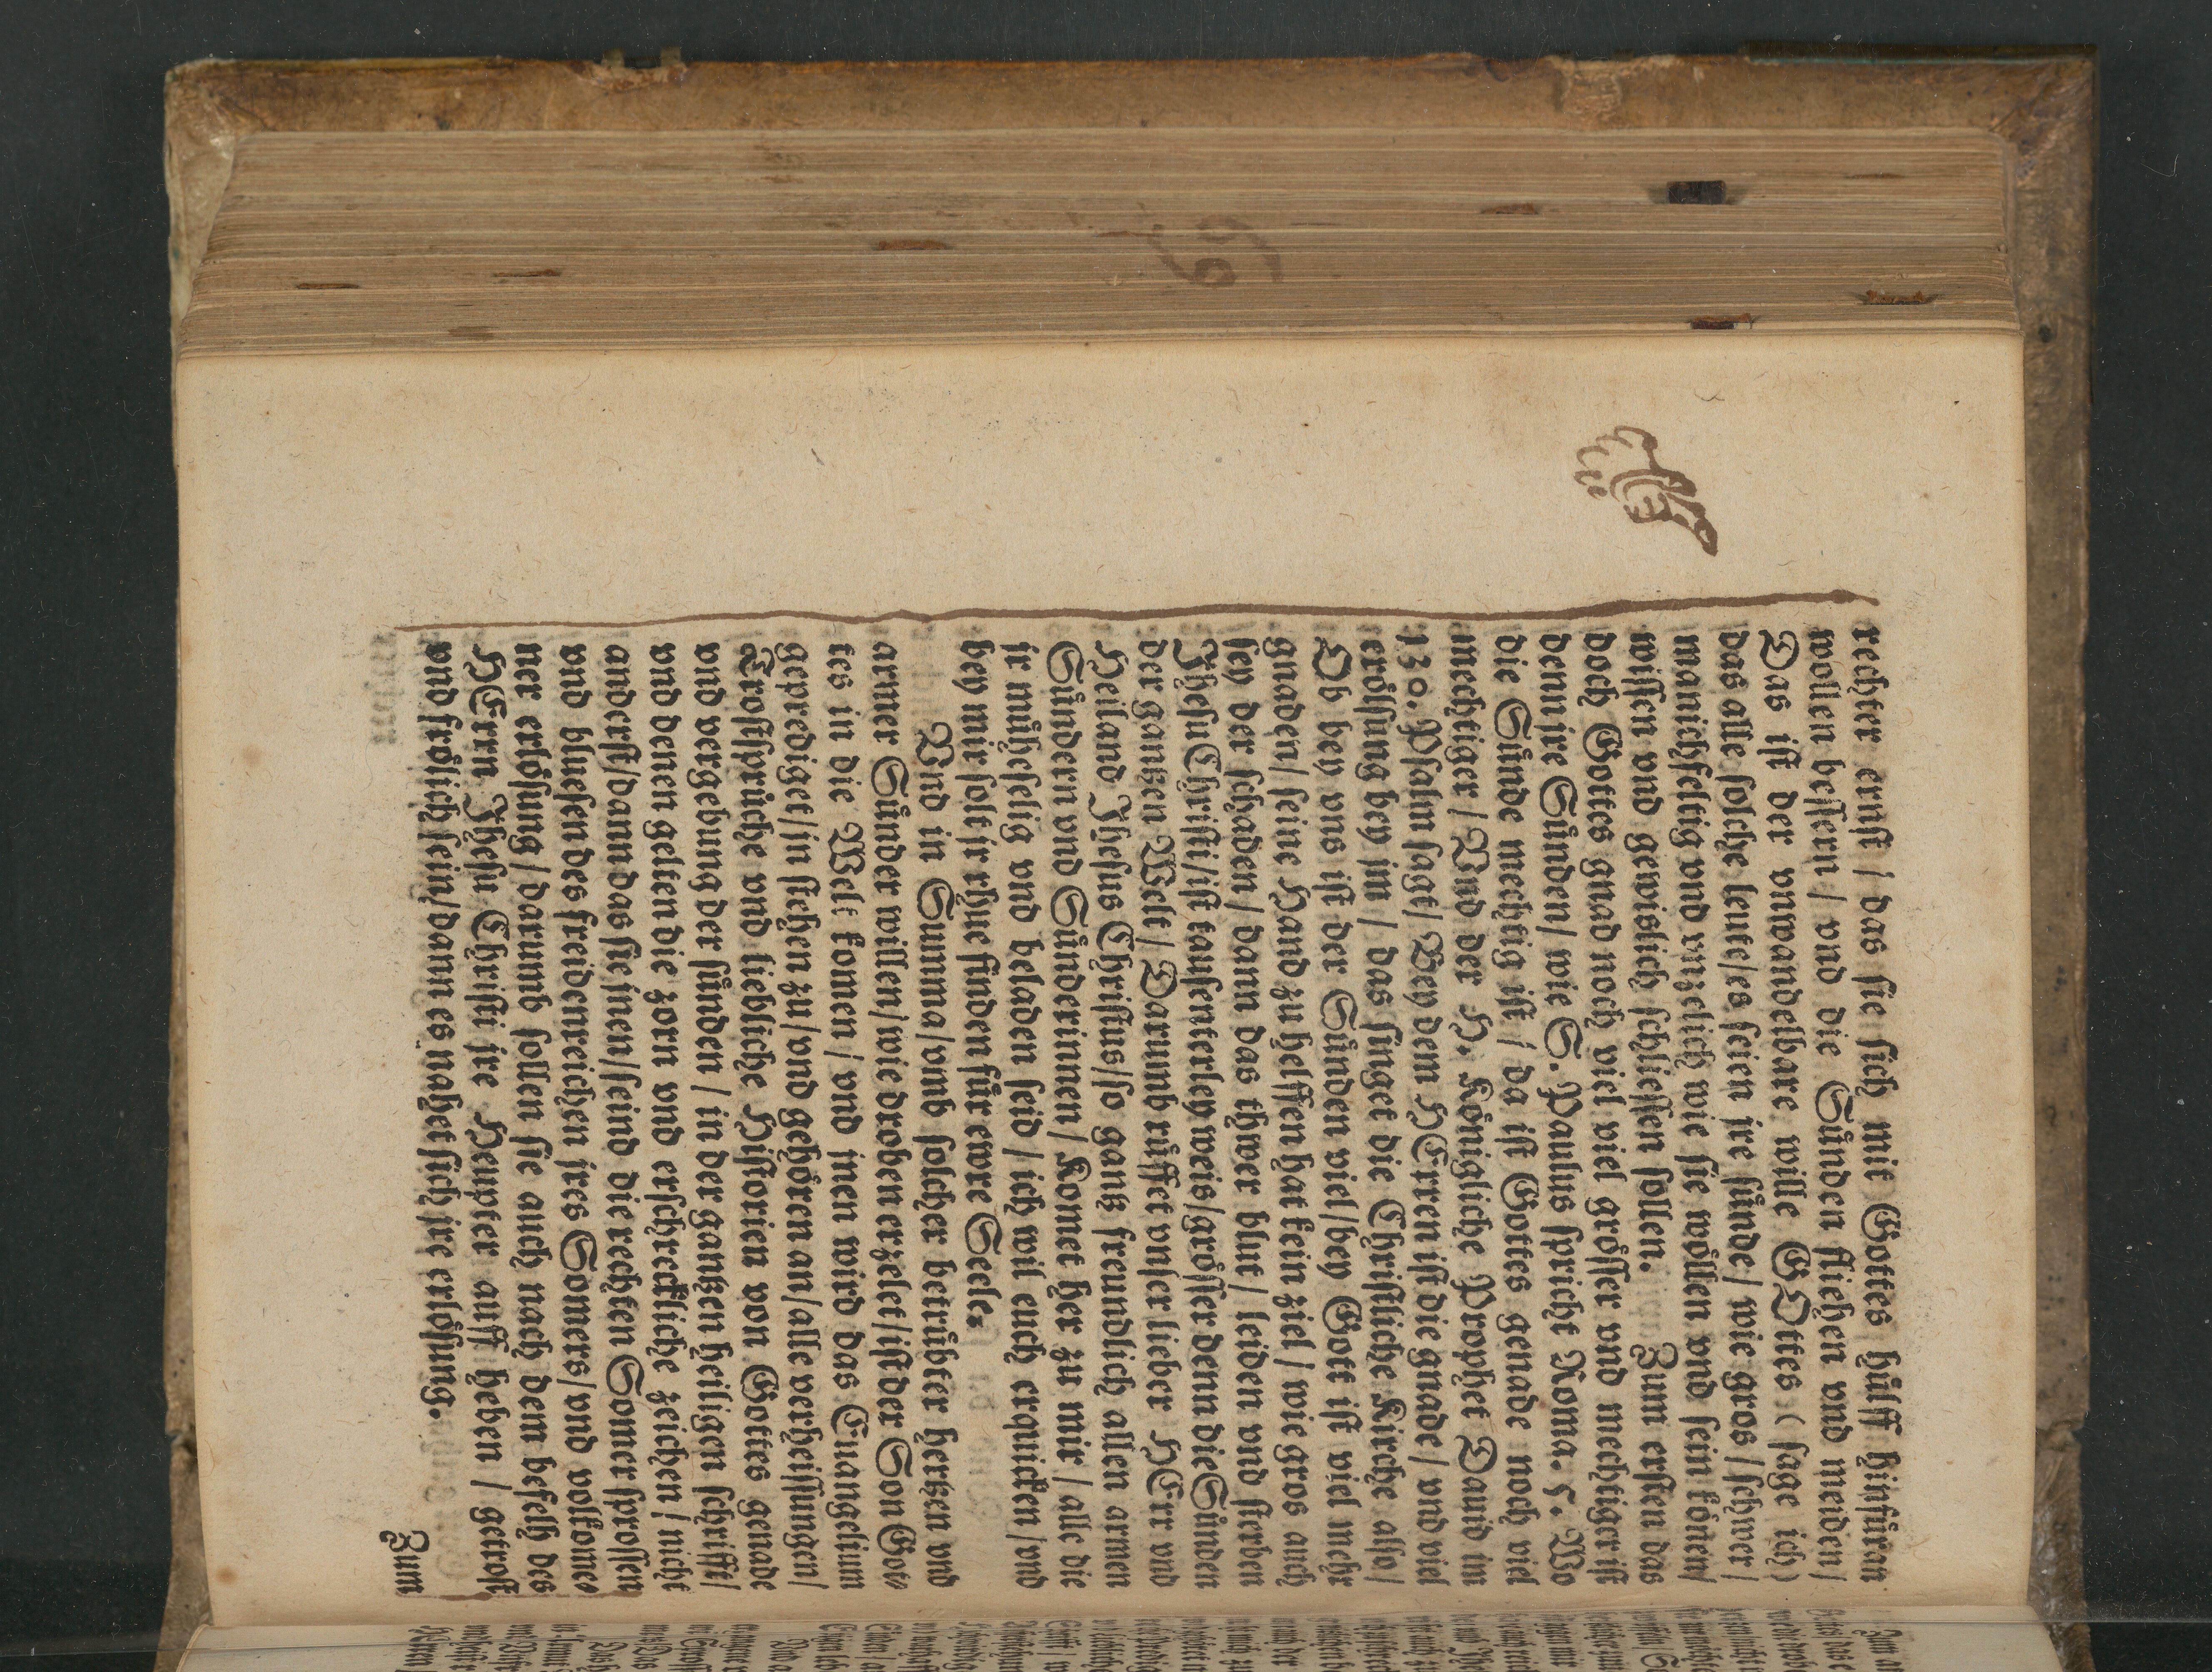 rechter ernst / das sie sich mit Gottes hülff hinfüran
wollen bessern / vnd die Sünden fliehen vnd meiden /
Das ist der vnwandelbare wille GOttes ( sage ich )
das alle solche leute / es seien jre sünde / wie gros / schwer /
manichfeltig vnd vnzelich wie sie wöllen vnd sein könen /
wissen vnd gewislich schliessen sollen. Zum ersten das
doch Gottes gnad noch viel viel grösser vnd mechtiger ist
denn jre Sünden / wie S. Paulus spricht Roma. 5. Wo
die Sünde mechtig ist / da ist Gottes genade noch viel
mechtiger / Vnd der H. Königliche Prophet Dauid im
130. Psalm sagt / Bey dem HErren ist die gnade / vnd viel
erlösung bey jm / das singet die Christliche Kirche also /
Ob bey vns ist der Sünden viel / bey Gott ist viel mehr
gnaden / seine Hand zu helffen hat kein ziel / wie gros auch
sey der schaden / dann das thwer blut / leiden vnd sterben
Jhesu Christi / ist tausenterley weis / grösser denn die Sünden
der gantzen Welt / Darumb rüffet vnser lieber HErr vnd
Heiland Jhesus Christus / so gantz freundlich allen armen
Sündern vnd Sünderinnen / Komet her zu mir / alle die
jr mühselig vnd beladen seid / ich wil euch erquicken / vnd
bey mir solt jr rhue finden für ewre Seele.
Vnd in Summa / vmb solcher betrübter hertzen vnd
armer Sünder willen / wie droben erzelet / ist der Son Got-
tes in die Welt komen / vnd jnen wird das Euangelium
geprediget / jn stehen zu / vnd gehören an / alle verheissungen /
Trostsprüche vnd liebliche Historien von Gottes genade
vnd vergebung der sünden / in der gantzen heiligen schrifft /
vnd denen gelten die zorn vnd erschreckliche zeichen / nicht
anderst / dann das sie jnen / seind die rechten Somersprossen
vnd bluesen des freidenreichen jres Somers / vnd volkome-
ner erlösung / darumb sollen sie auch nach dem befelh des
HErrn Jhesu Christi jre Heupter auff heben / getrost
vnd frölich sein / dann es nahet sich jre erlösung.
Zum